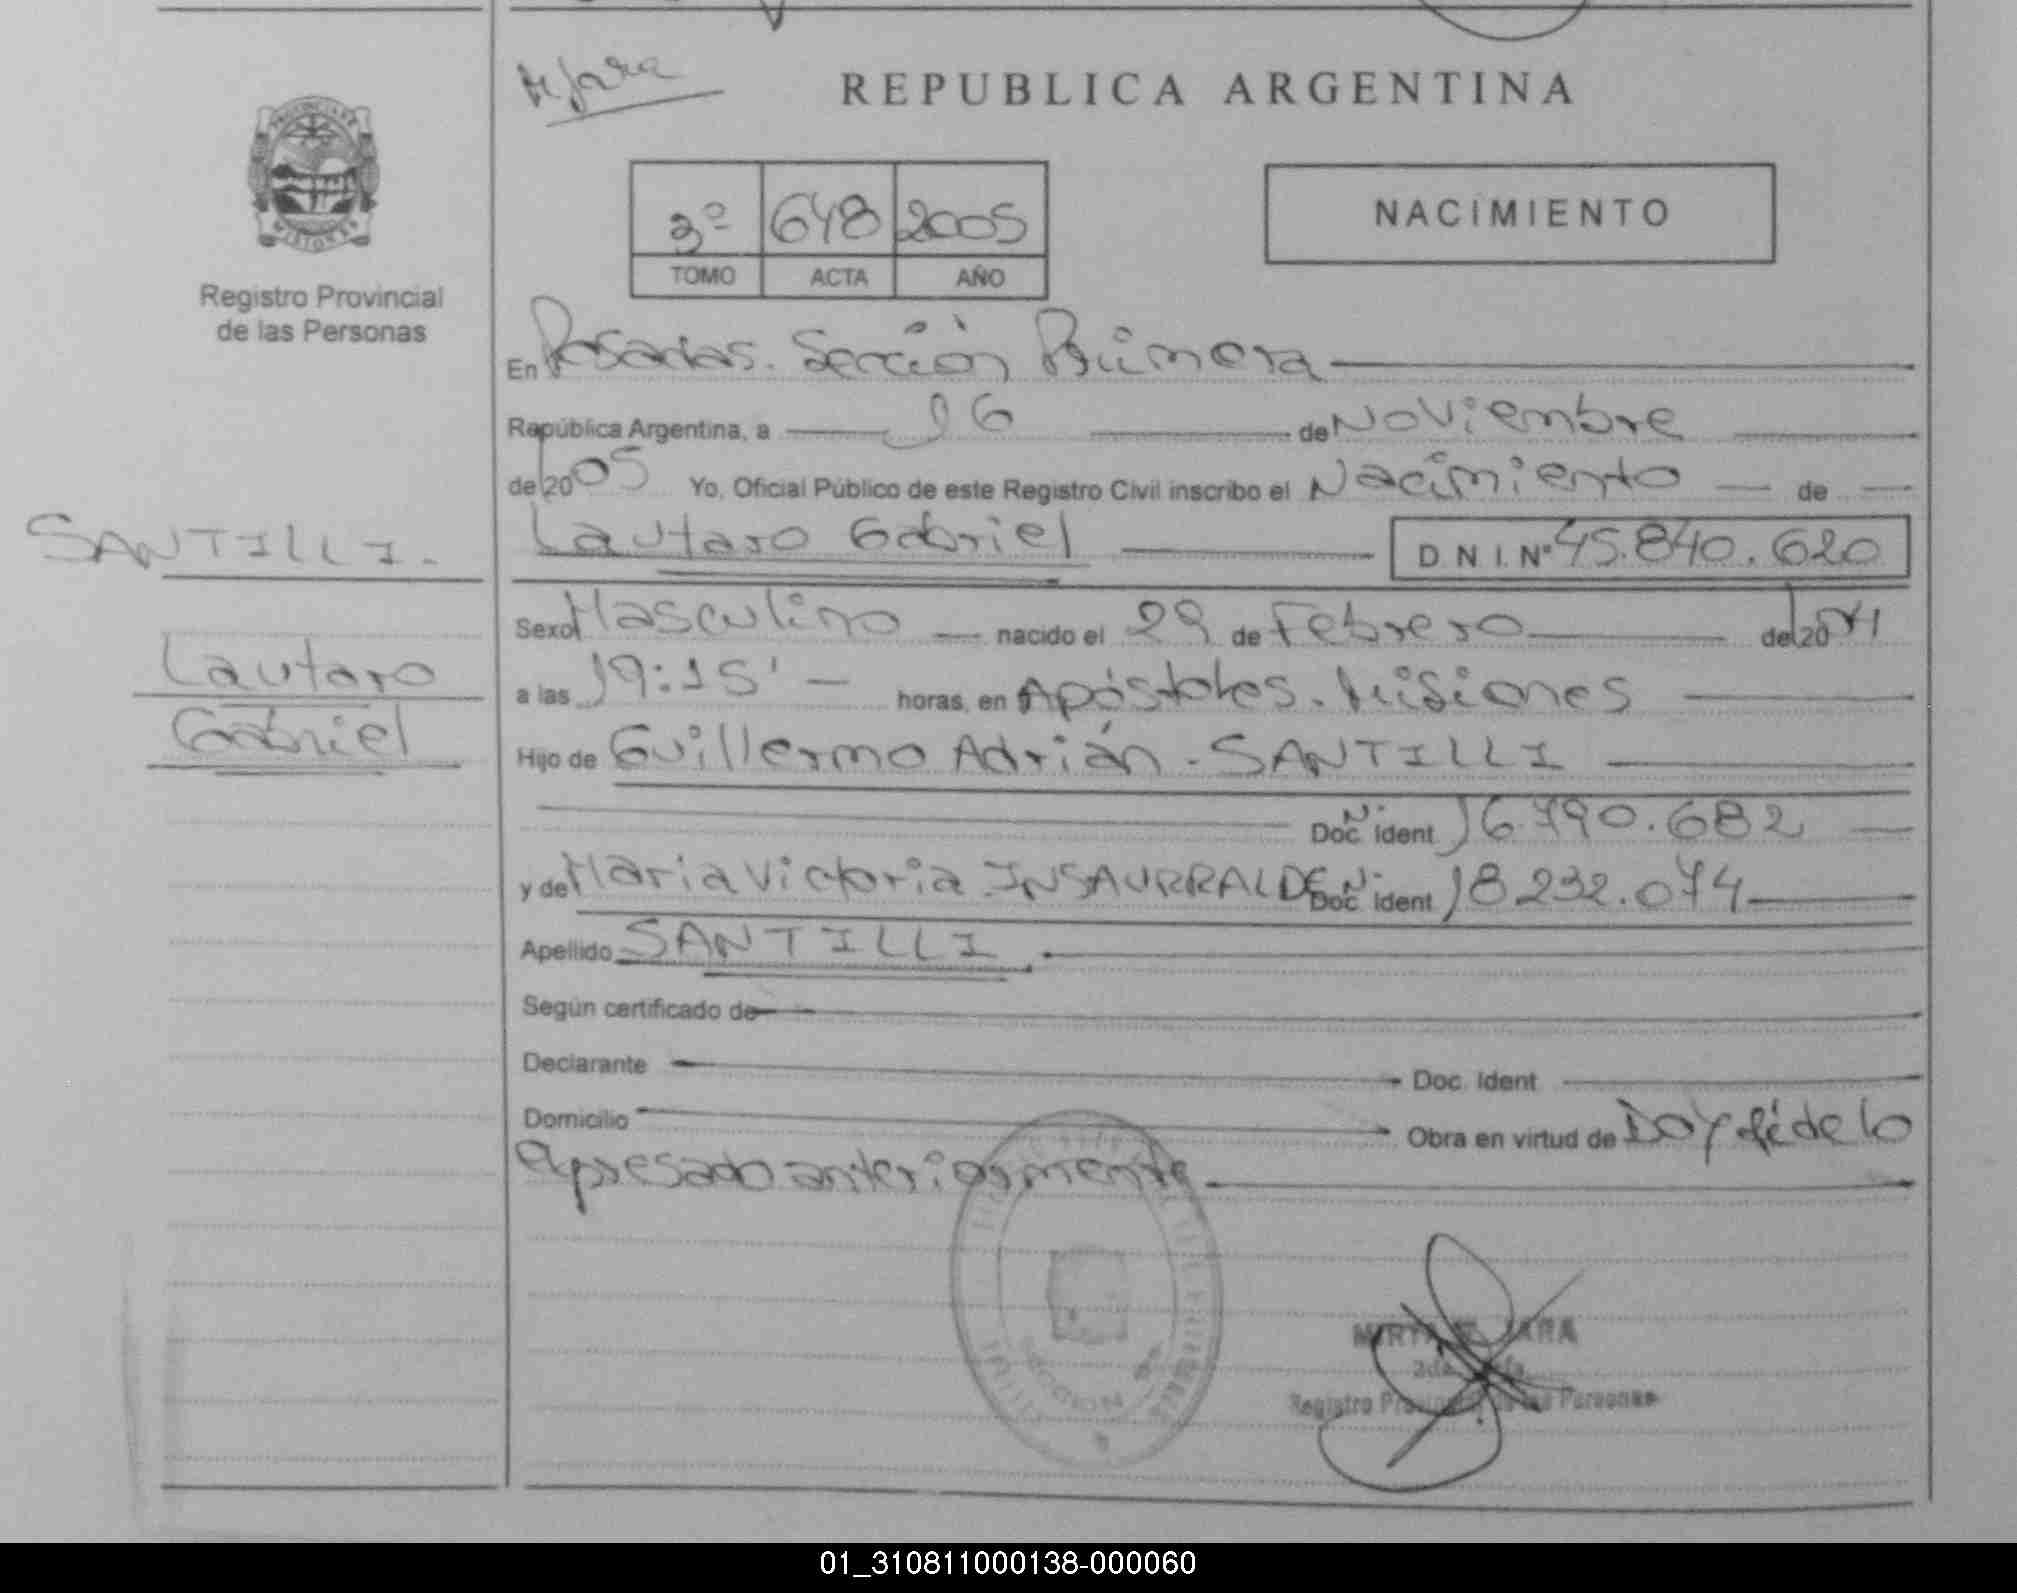 M Jara
REPUBLICA ARGENTINA
PROVINCIA DE
MISIONES
Registro Provincial
de las Personas
3º 648 2005
TOMO ACTA AÑO
NACIMIENTO
En Posadas. Sección Primera
República Argentina, a 16 de Noviembre
de 2005 Yo, Oficial Público de este Registro Civil inscribo el Nacimiento de
SANTILLI.
Lautaro Gabriel D N I. Nº 45.840.620
Sexo Masculino nacido el 29 de Febrero de 20
Lautaro
Gabriel
a las 19:15' horas, en Apóstoles. Misiones
Hijo de Guillermo Adrián - SANTILLI
Nº
Doc. Ident 16.790.682
y de Maria Victoria INSAURRALDE Nº Doc. Ident 18.232.074
Apellido SANTILLI
Según certificado de
Declarante Doc. Ident
Domicilio Obra en virtud de Doy fé de lo
expresado anteriormente
SECCION
MIRTA JARA
Registro Provincial de las Personas
01_310811000138-000060